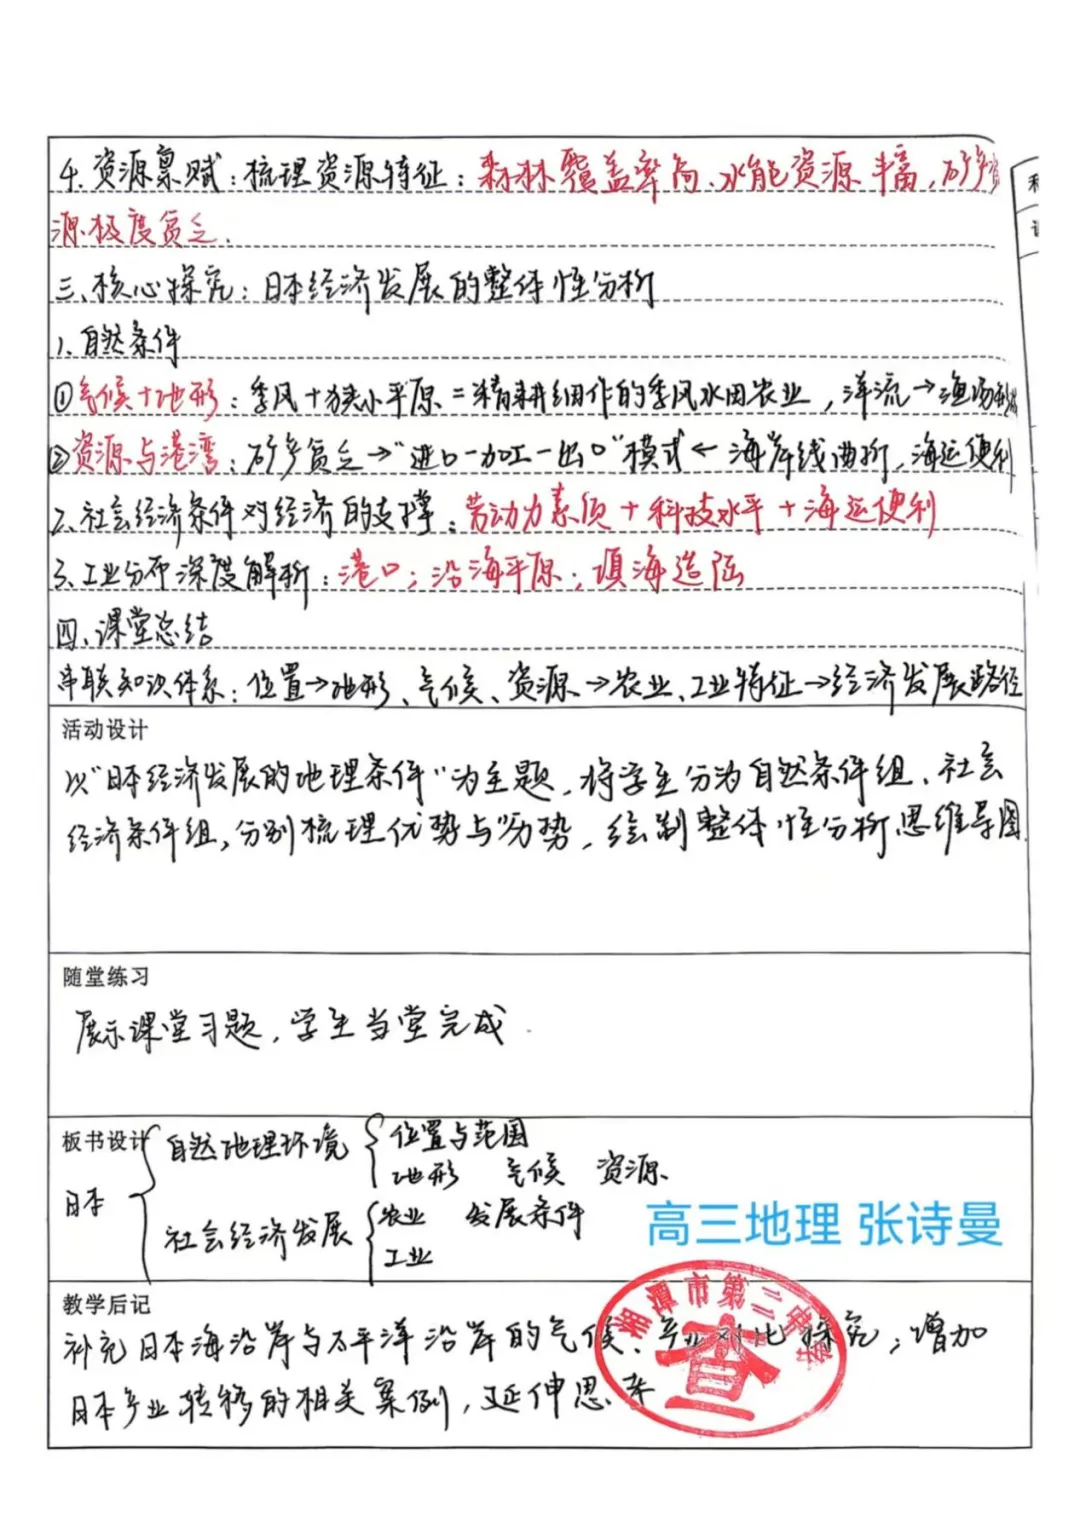 4. 资源禀赋：梳理资源特征：森林覆盖率高、水能资源丰富，矿产资
源极度贫乏.
三、核心探究：日本经济发展的整体性分析
1. 自然条件
①气候+地形：季风+狭小平原=精耕细作的季风水田农业，洋流→渔场
②资源与港湾：矿产贫乏→"进口-加工-出口"模式←海岸线曲折，海运便利
2. 社会经济条件对经济的支撑：劳动力素质+科技水平+海运便利
3. 工业分布深度解析：港口；沿海平原；填海造陆
四、课堂总结
串联知识体系：位置→地形、气候、资源→农业、工业特征→经济发展路径
活动设计
以"日本经济发展的地理条件"为主题，将学生分为自然条件组、社会
经济条件组，分别梳理优势与劣势，绘制整体性分析思维导图.
随堂练习
展示课堂习题，学生当堂完成.
板书设计
日本
自然地理环境
位置与范围
地形 气候 资源
社会经济发展
农业 发展条件
工业
高三地理 张诗曼
教学后记
补充日本海沿岸与太平洋沿岸的气候、产业对比探究；增加
日本产业转移的相关案例，延伸思考
湘潭市第二中学
查